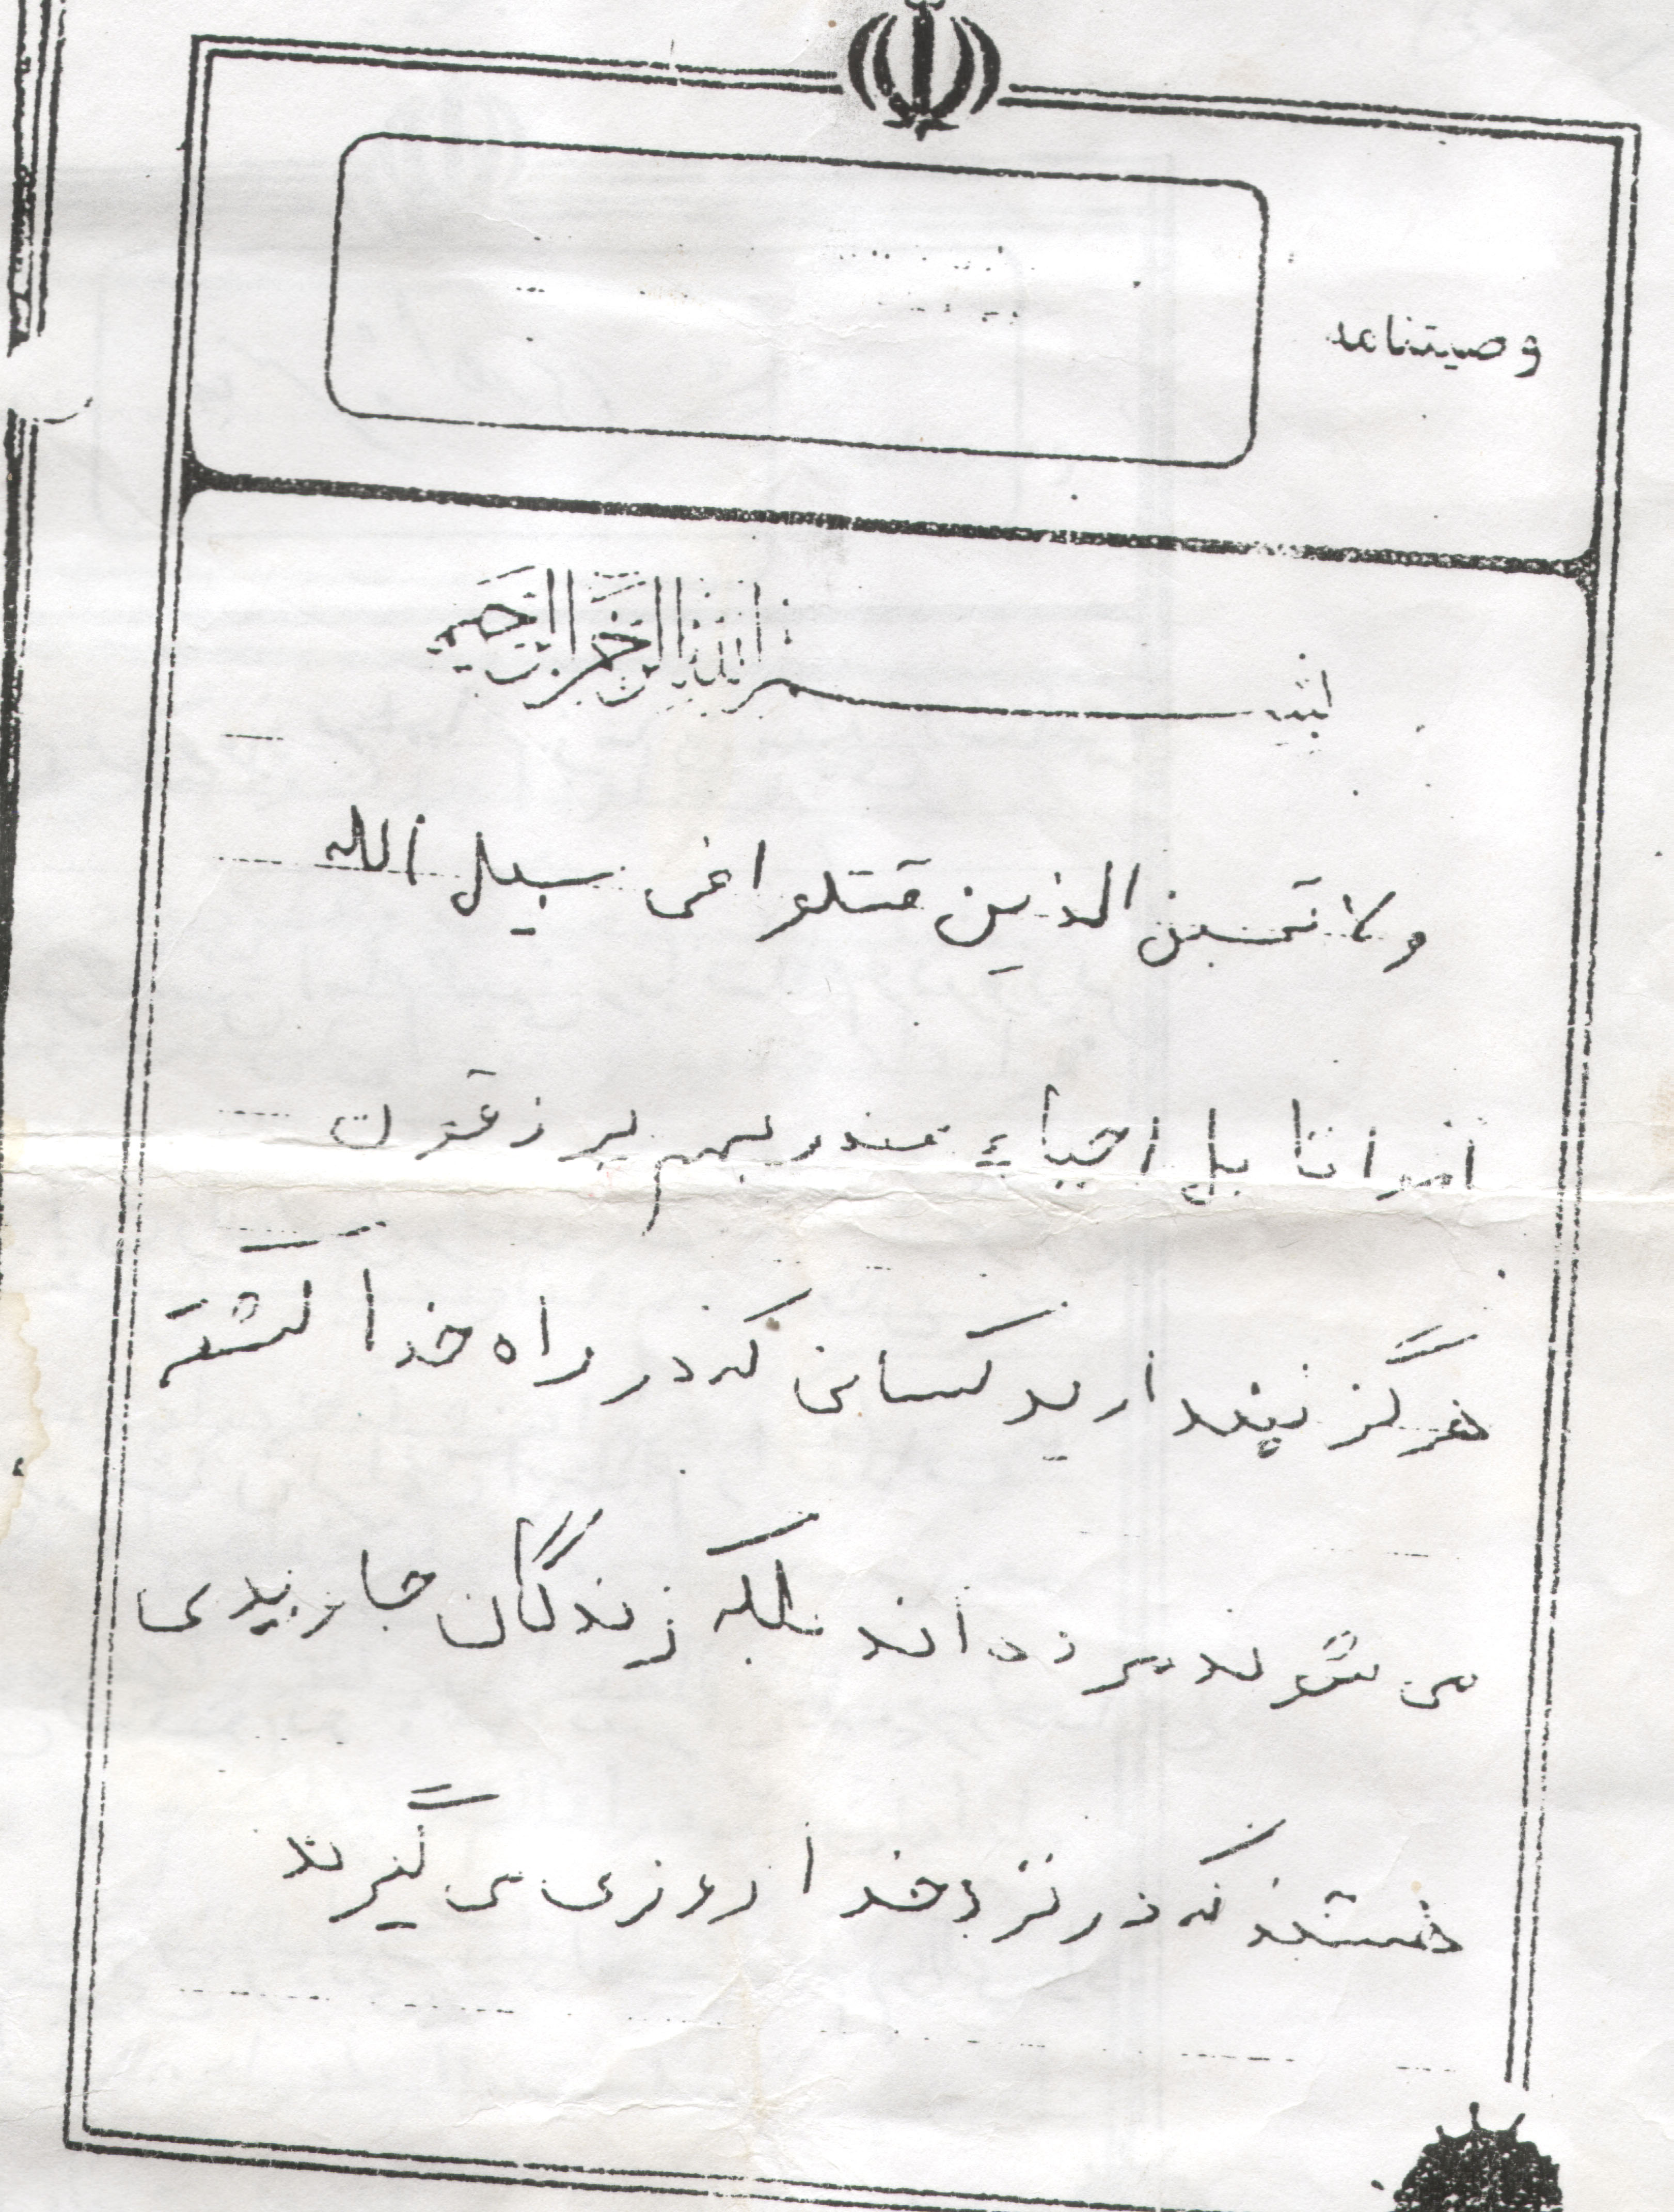 وصیتنامه
بسم الله الرحمن الرحیم
ولا تحسبن الذین قتلوا فی سبیل الله
امواتا بل احیاء عند ربهم یرزقون
هرگز نپندارید کسانی که در راه خدا کشته
می شوند مرده اند بلکه زندگان جاویدی
هستند که در نزد خدا روزی می گیرند